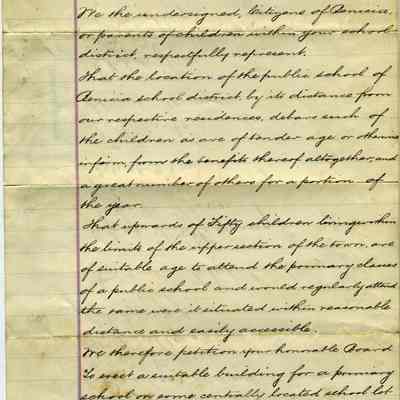 We the undersigned, Citizens of Benicia
or parents of children within your school
district, respectfully represent.
That the location of the public school of
Benicia school district, by its distance from
our respective residences, debars such of
the children as are of tender age or otherwise
infirm, from the benefits thereof altogether, and
a great number of others for a portion of
the year.
That upwards of Fifty children living within
the limits of the upper section of the town, are
of suitable age to attend the primary classes
of a public school and would regularly attend
the same were it situated within reasonable
distance and easily accessible.
We therefore petition your honorable Board
To erect a suitable building for a primary
school on some centrally located school lot